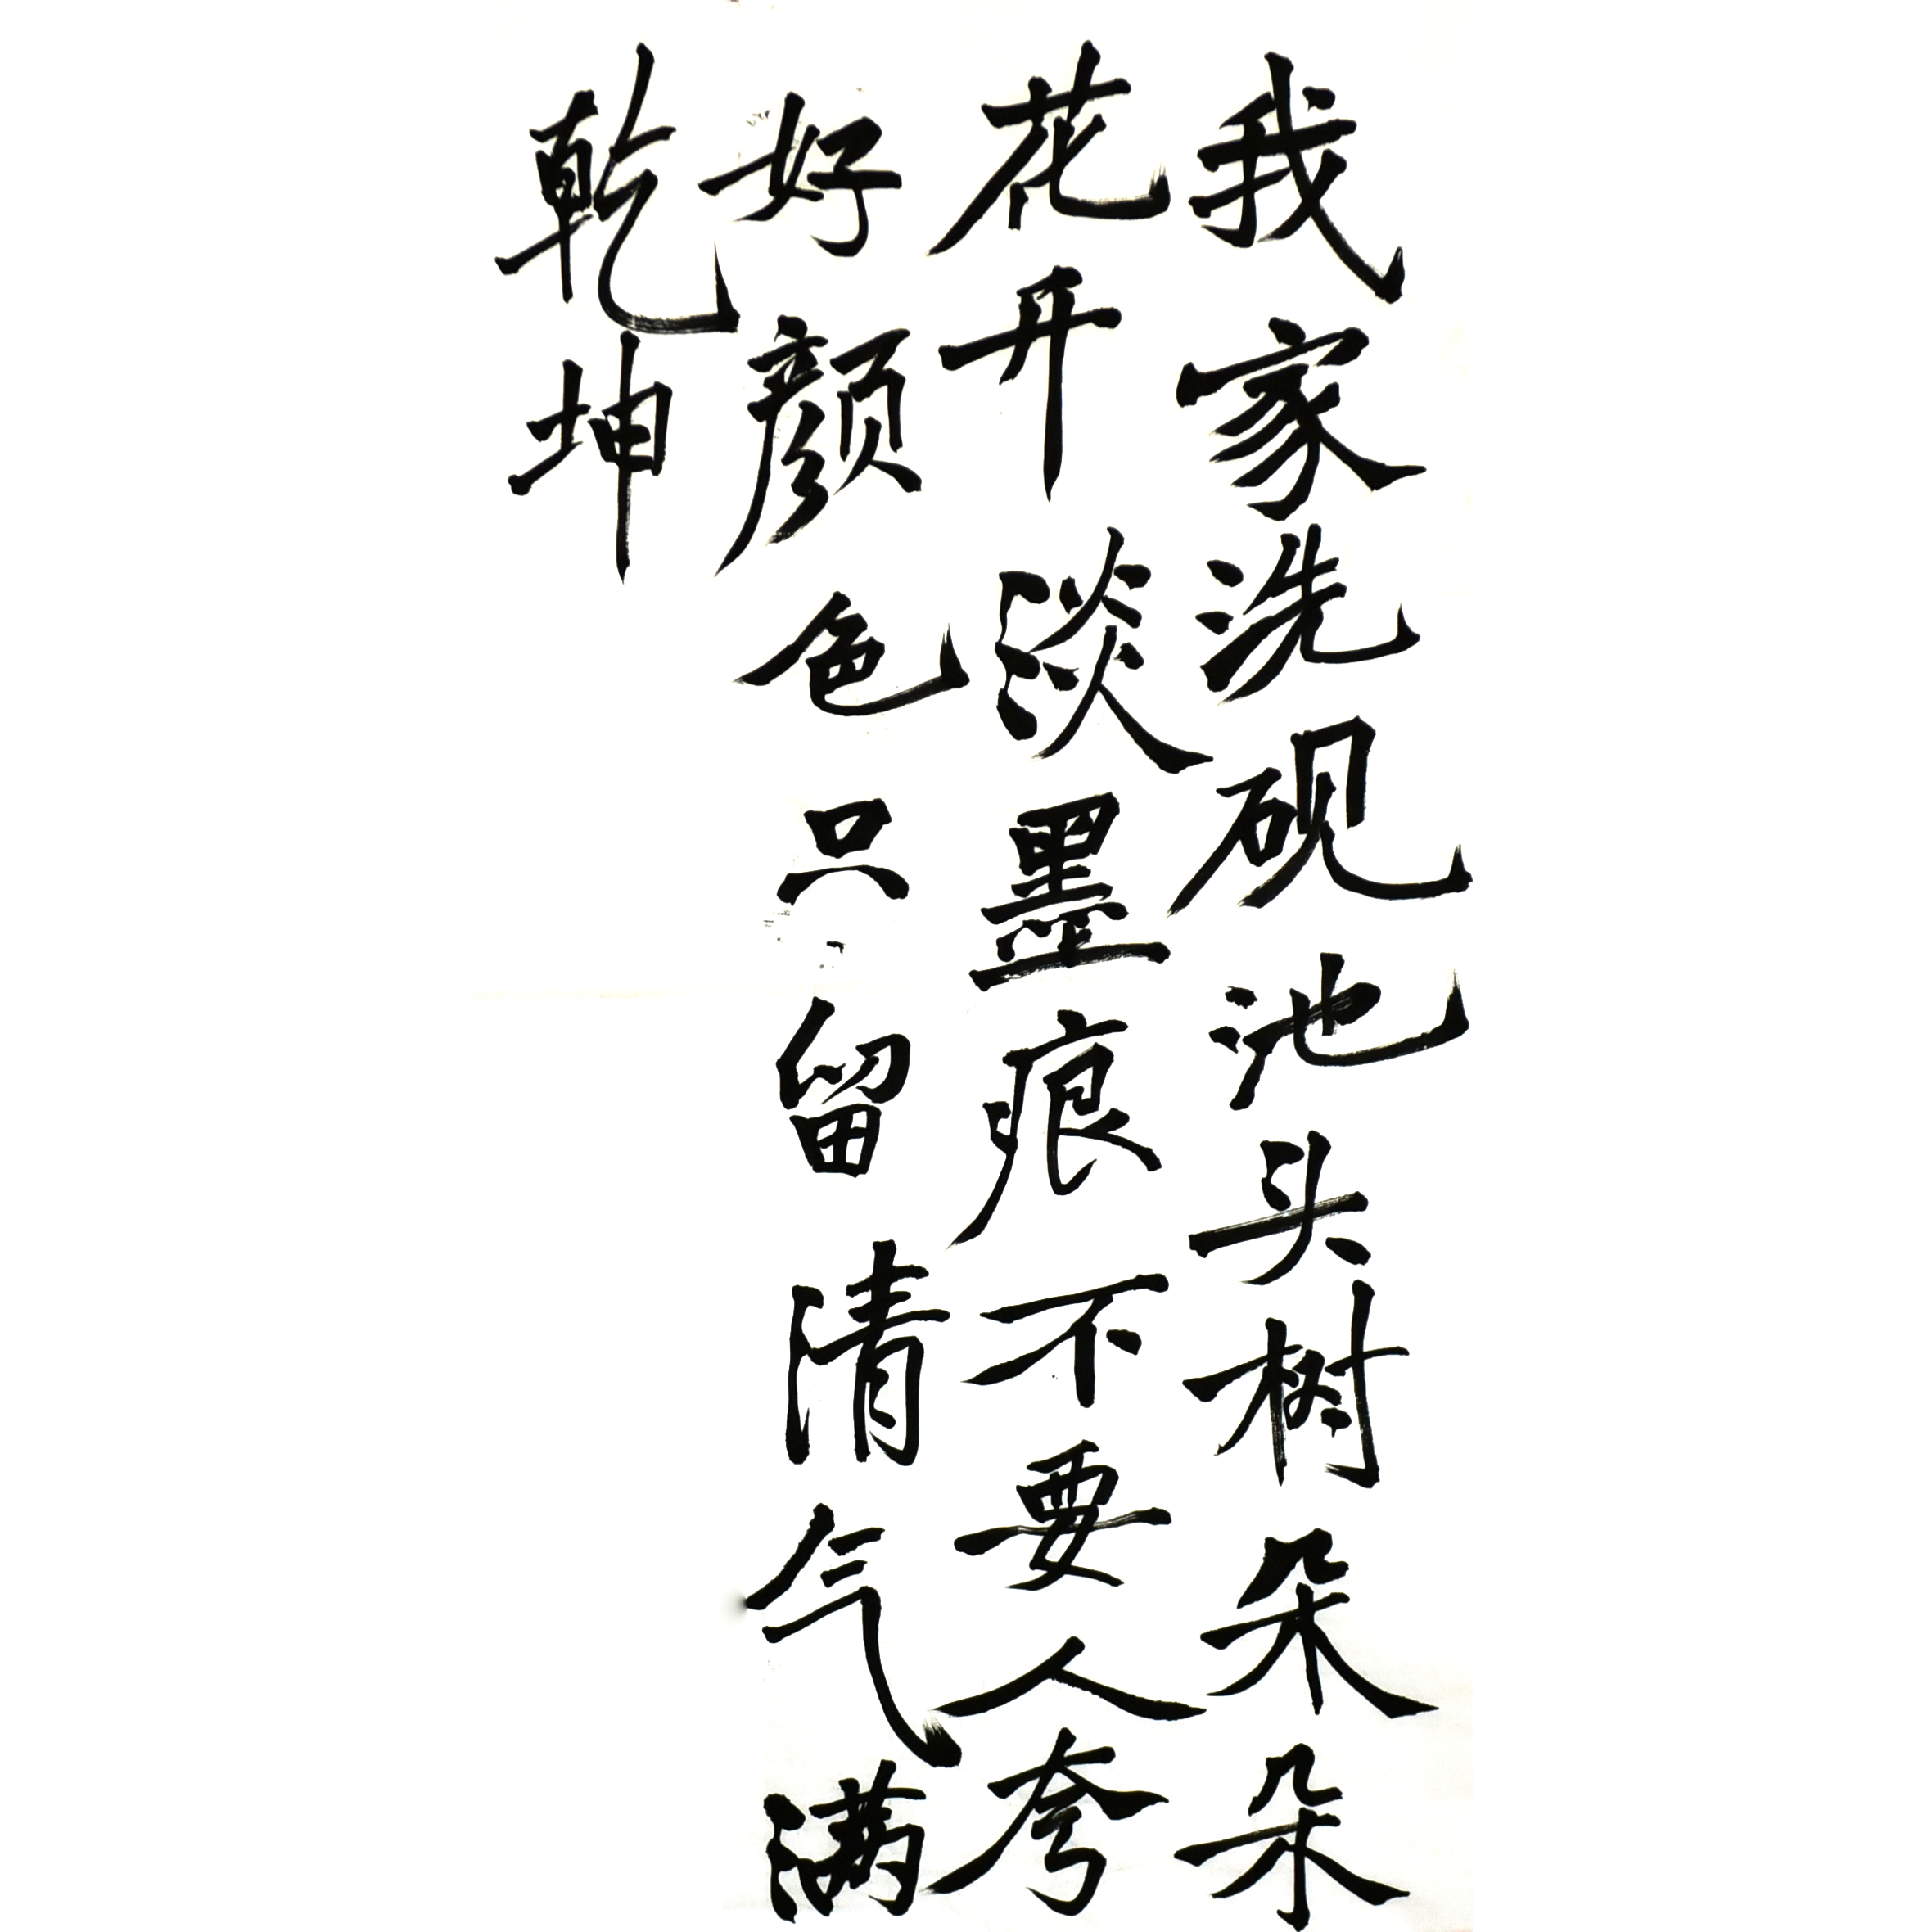 我家洗砚池头树朵朵
花开淡墨痕不要人夸
好颜色只留清气满
乾坤